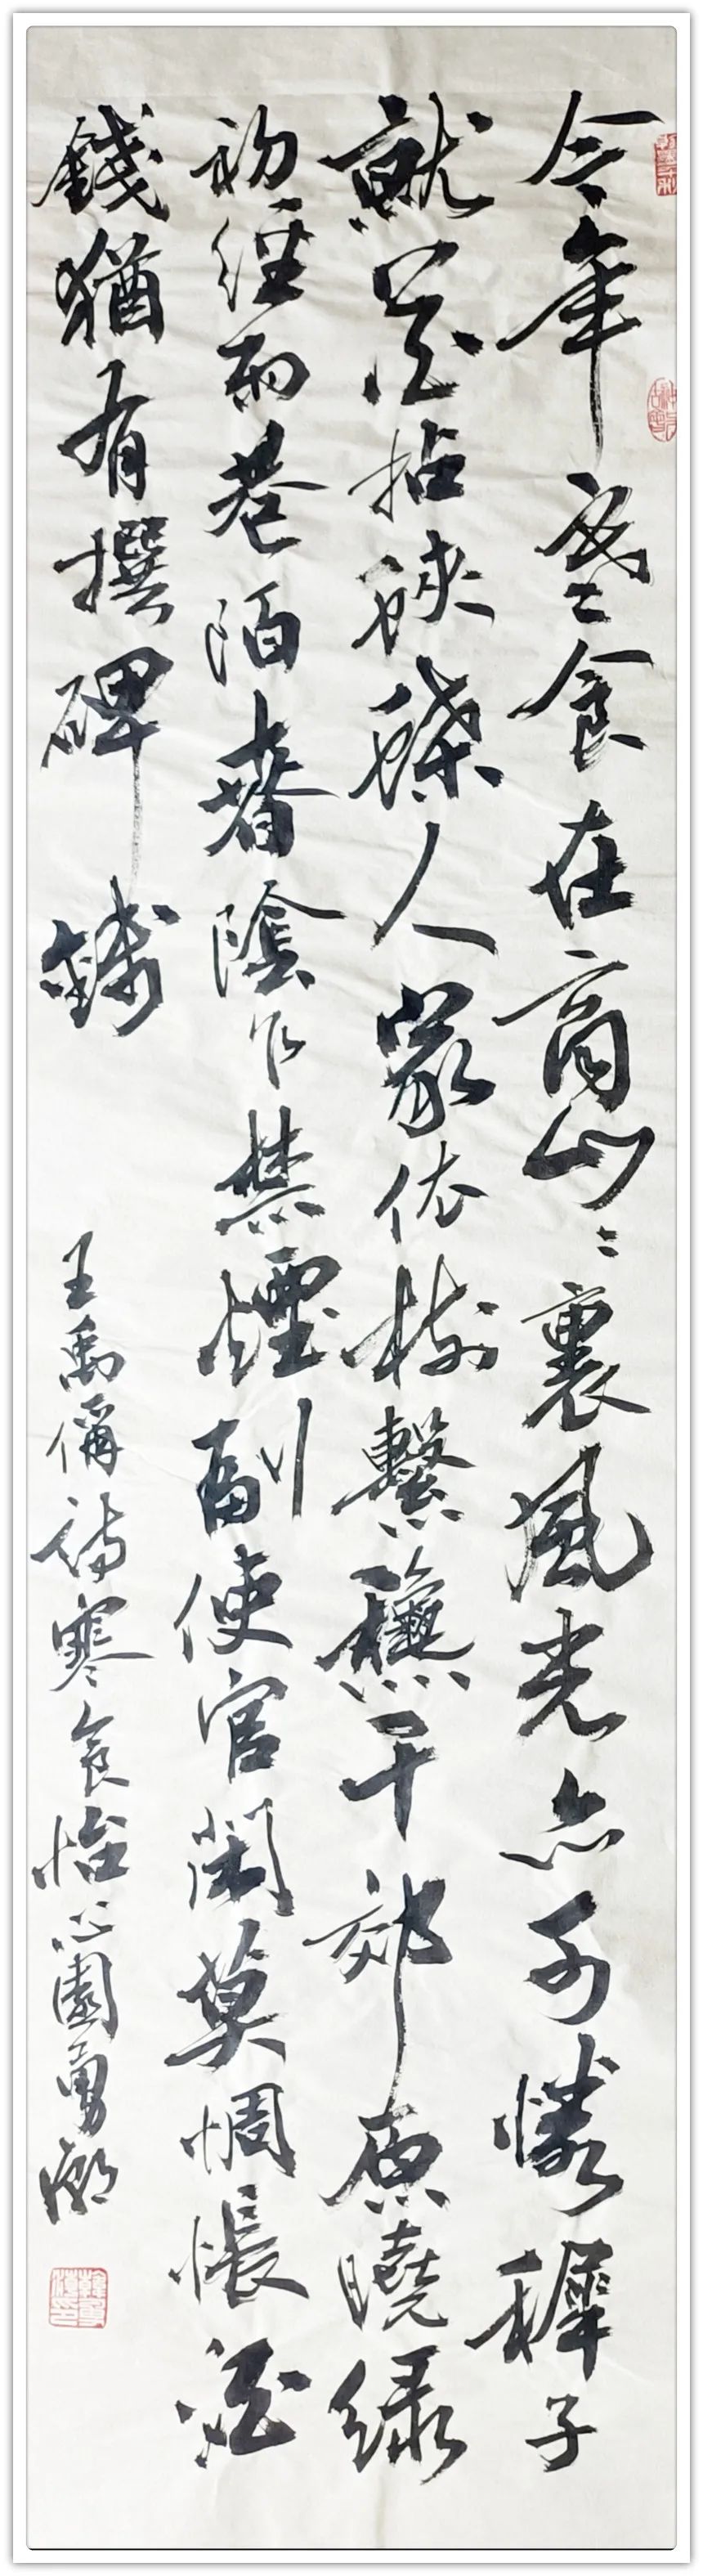 今年寒食在商山〻裏風光亦可憐穉子
就花拈蛺蝶人家依樹繫龝千郊原曉綠
初經雨巷陌春陰乍禁煙副使官閑莫惆悵酒
錢猶有撰碑錢
王禹偁詩寒食怡心園勇